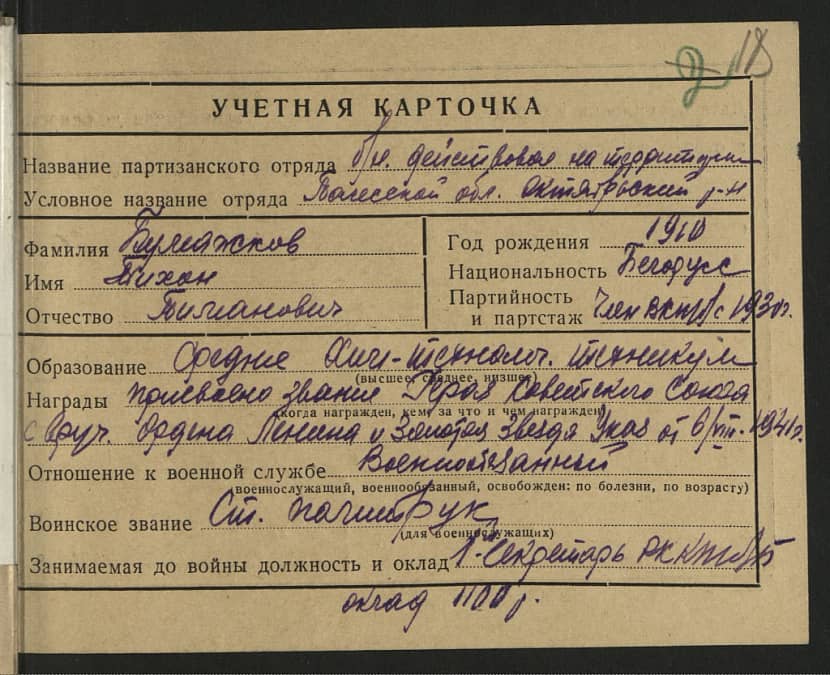 218
УЧЕТНАЯ КАРТОЧКА
Название партизанского отряда б/н. действовал на территории
Условное название отряда Полесской обл. Октябрьский р-н
Фамилия Бумажков
Имя Тихон
Отчество Пиманович
Год рождения 1910
Национальность Белорусс
Партийность
и партстаж Член ВКП(б) с 1930г.
Образование Средние Хим-технолог. техникум
(высшее, среднее, низшее)
Награды присвоено звание Героя Советского Союза
(когда награжден, кем, за что и чем награжден)
с вруч. Ордена Ленина и Золотая Звезда Указ от 6/VIII-1941г.
Отношение к военной службе Военнообязанный
(военнослужащий, военнообязанный, освобожден: по болезни, по возрасту)
Воинское звание Ст. политрук
(для военнослужащих)
Занимаемая до войны должность и оклад 1-Секретарь РК КП(б)Б
оклад 1100 р.